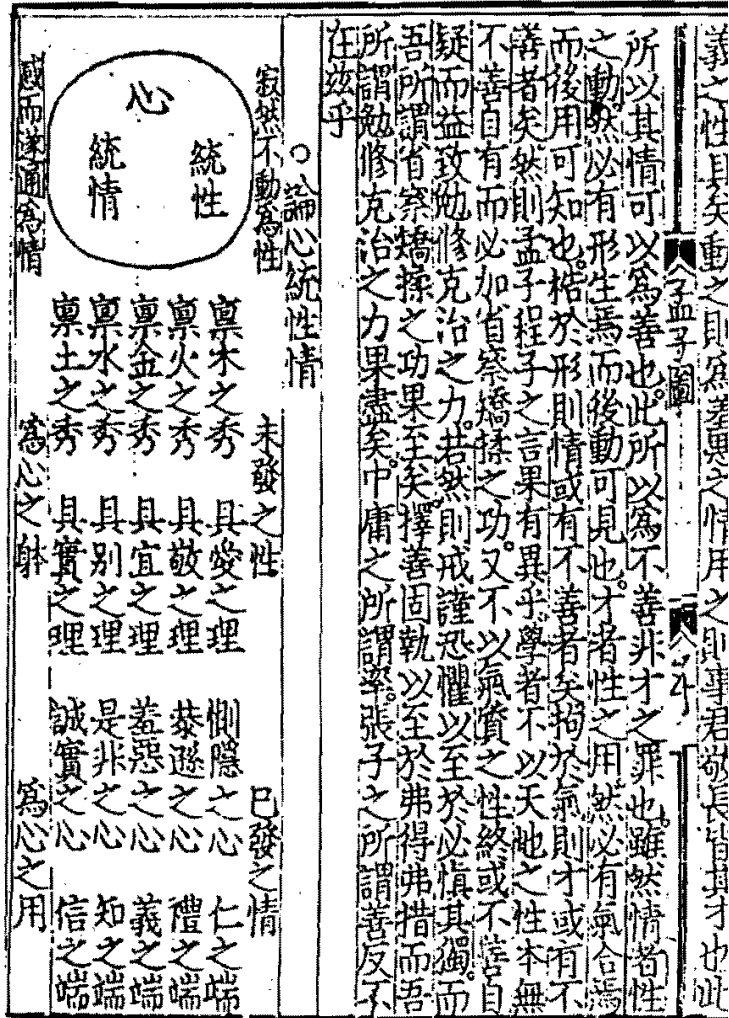 義之性具矣動之則為羞惡之情用之則事君敬長皆其才也此
孟子圖
所以其情可以為善也此所以為不善非才之罪也雖然情者性
之動然必有形生焉而後動可見也才者性之用然必有氣合焉
而後用可知也梏於形則情或有不善者矣拘於氣則才或有不
善者矣然則孟子程子之言果有異乎學者不以天地之性本無
不善自有而必加省察矯揉之功又不以氣質之性終或不善自
疑而益致勉修克治之力若然則戒謹恐懼以至於必慎其獨而
吾所謂省察矯揉之功果至矣擇善固執以至於弗得弗措而吾
所謂勉修克治之力果盡矣中庸之所謂率張子之所謂善反不
在茲乎
○論心統性情
寂然不動為性
心
統性
統情
感而遂通為情
未發之性
已發之情
稟木之秀 具愛之理 惻隱之心 仁之端
稟火之秀 具敬之理 恭遜之心 禮之端
稟金之秀 具宜之理 羞惡之心 義之端
稟水之秀 具別之理 是非之心 知之端
稟土之秀 具實之理 誠實之心 信之端
為心之躰
為心之用